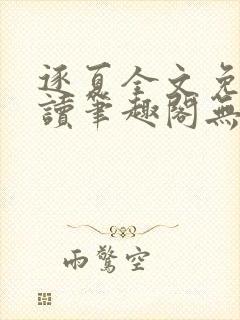 逐夏全文免
讀筆趣閣無
雨驚空